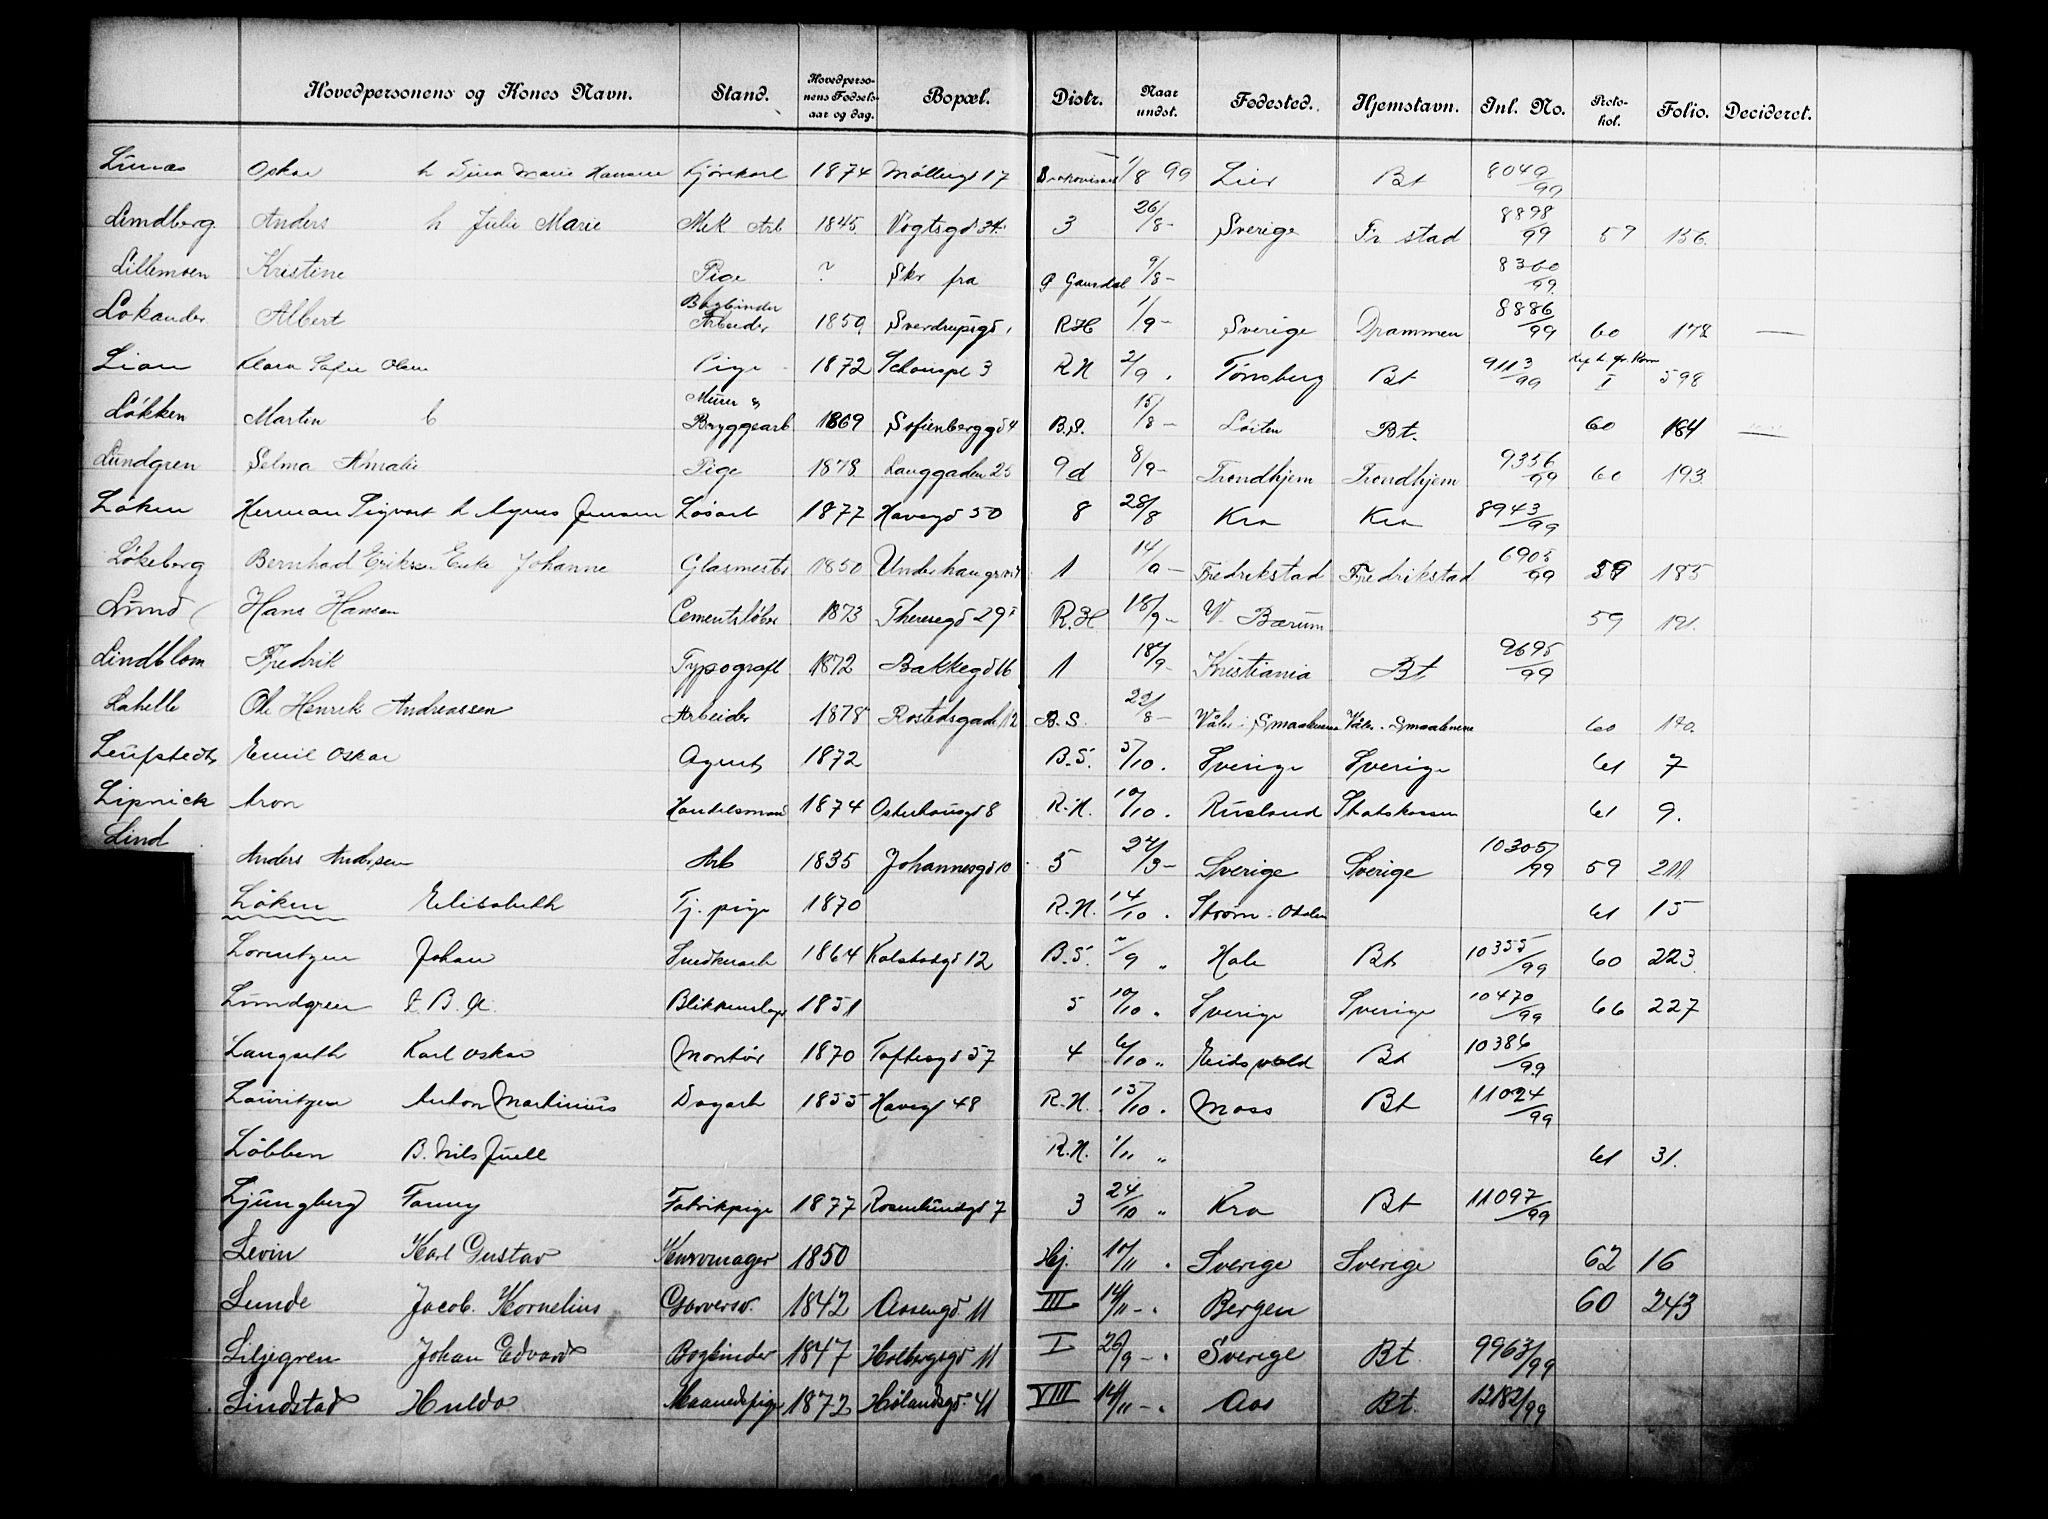 Hovedpersonens og Kones Navn. Stand. Hovedpersonens Fødselsaar og dag. Bopæl. Distr. Naar undst. Fødested. Hjemstavn. Inl. No. Protokol. Folio. Decideret.
Oskar h Marie Hansen Kjørekarl 1874 Møllergd 17 1/8 99 Lier Bt 8049/99
Lundberg Anders h Julie Marie Mek Arb 1845 Vogtsgd 3 26/8 - Sverige Fr stad 8898/99 59 156.
Lillemoen Kristine Pige ? Skr fra Gausdal 9/8 - 8360/99
Lokander Albert Bogbinder Arbeider 1850 Sverdrupsgd 1 R.H 1/9 - Sverige Drammen 8886/99 60 178 —
Lian Klara Sofie Olsen Pige 1872 Schouspl 3 R.N 2/9 . Tønsberg Bt 9113/99 I 598
Løkken Martin Murer & Bryggearb 1869 Sofienberggd 4 B.S. 15/8 - Løiten Bt. 60 184 —
Lundgren Selma Amalie Pige 1878 Langgaden 25 9 d 8/9 - Trondhjem Trondhjem 9356/99 60 193.
Løken Herman Sigvart h Agnes Jensen Løsarb 1877 Havegd 50 8 28/8 Kra Kra 8943/99
Løkeberg Bernhad Eriks. Enke Johanne Glasmester 1850 Underhaugsv 1 14/9 - Fredrikstad Fredrikstad 6905/99 59 185
Lund Hans Hansen Cementstøber 1873 Theresegd 29 R.H. 18/9 - V. Bærum 59 191.
Lindblom Fredrik Typograf 1872 Bakkegd 16 1 18/9 - Kristiania Bt 9695/99
Lahelle Ole Henrik Andreassen Arbeider 1878 Rostedsgade 12 B.S. 22/8 - Våler i Smaalenene Våler i Smaalenene 60 170.
Leufstedt Emil Oskar Agent 1872 B.S. 5/10 . Sverige Sverige 61 7
Lipnick Aron Handelsmand 1874 Osterhausgd 8 R.N. 10/10 . Rusland Statskassen 61 9.
Lind Anders Andersen Arb 1835 Johannesgd 10 5 27/3 - Sverige Sverige 10305/99 59 211
Løken Elisabeth Tj. pige 1870 R.N. 14/10 . Strøm i Odalen 61 15
Lorentzen Johan Snedkerarb 1864 Kalstadgd 12 B.S. 2/9 " Hole Bt 10355/99 60 223.
Lundgren B. A. Blikkenslager 1851 5 10/10 . Sverige Sverige 10470/99 66 227
Langseth Karl Oskar Montør 1870 Toftesgd 57 4 6/10 " Eidsvold Bt 10386/99
Lauritzen Anton Martinius Dagarb 1855 Havegd 48 R.N. 15/10 . Moss Bt 11024/99
Løbben B. Nils Juell R.N. 1/11 " 61 31.
Ljungberg Fanny Fabrikpige 1877 Rosenlundgd 7 3 24/10 " Kra Bt 11097/99
Levin Karl Gustav Kurvmager 1850 Hj. 10/11 . Sverige Sverige 62 16
Lunde Jacob Kornelius Garversv. 1842 Aasengd 11 III 14/11 - . Bergen 60 243
Liljegren Johan Edvard Bogbinder 1847 Holbergsgd 11 I 26/9 - . Sverige Bt. 9963/99
Lindstad Hulda Maanedspige 1872 Hølandsgd. 41 VIII 14/11 - . Aas Bt. 12182/99